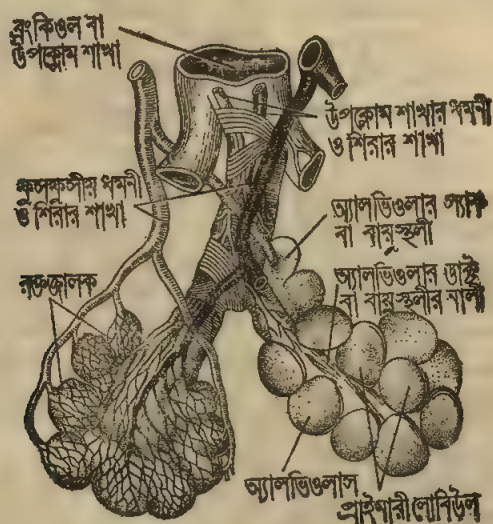 ব্রংকিওল বা
উপক্লোম শাখা
উপক্লোম শাখার ধমনী
ও শিরার শাখা
ফুসফুসীর ধমনী
ও শিরার শাখা
অ্যালভিওলার স্যাক
বা বায়ুস্থলী
অ্যালভিওলার ডাক্ট
বা বায়ুস্থলীর নালী
রক্তজালক
অ্যালভিওলাস
প্রাইমারী লোবিউল